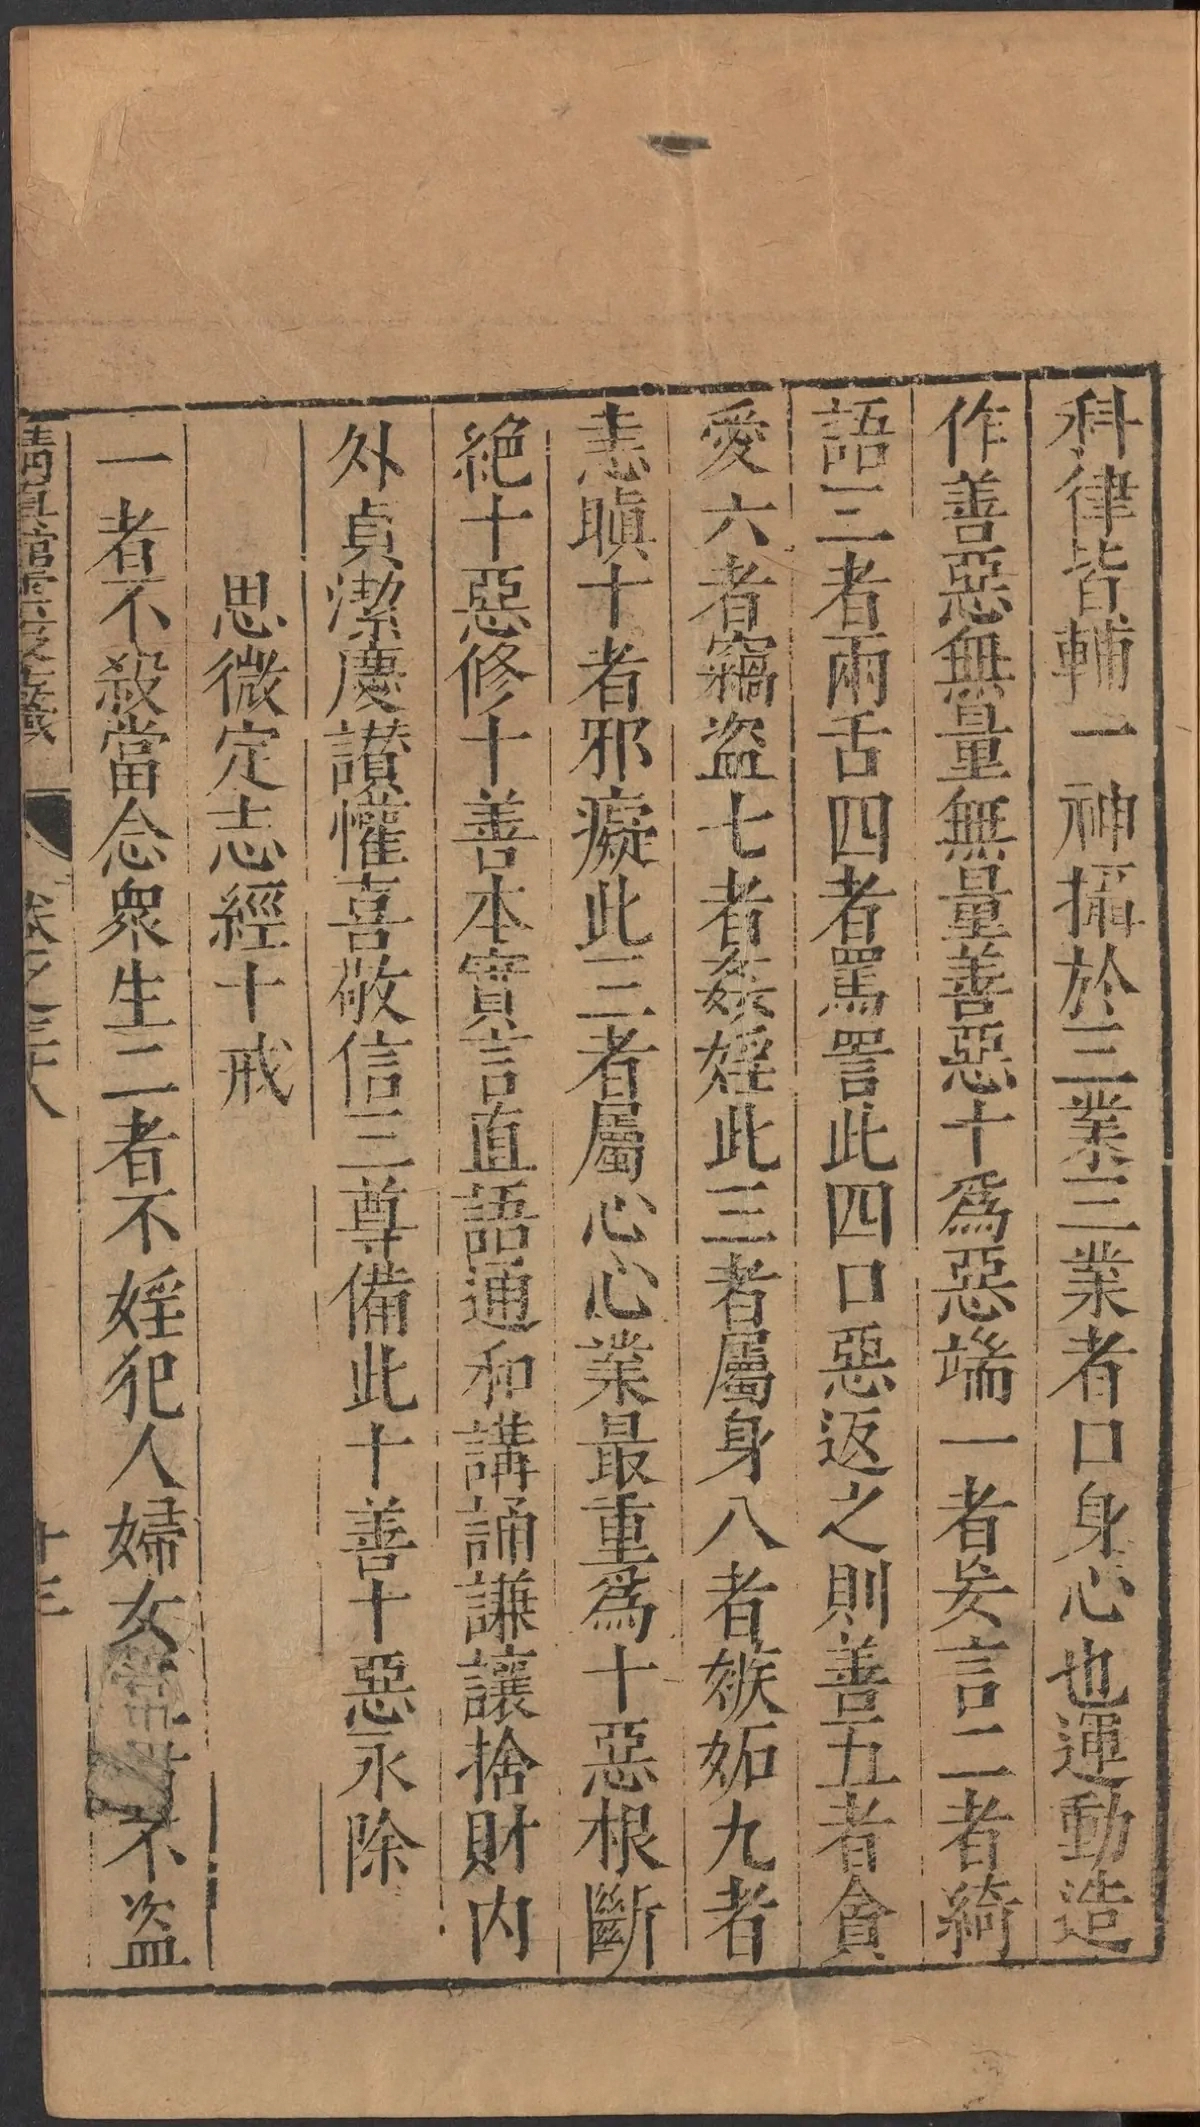 科律皆輔一神攝於三業三業者口身心也運動造
作善惡無量無量善惡十爲惡端一者妄言二者綺
語三者兩舌四者罵詈此四口惡返之則善五者貪
愛六者竊盗七者姦婬此三者屬身八者嫉妬九者
恚瞋十者邪癡此三者屬心心業最重爲十惡根斷
絶十惡修十善本實言直語通和講誦謙讓捨財内
外貞潔慶讃懽喜敬信三尊備此十善十惡永除
思微定志經十戒
一者不殺當念衆生二者不婬犯人婦女不盗
清真館雲笈七籤
卷之三十八
十三